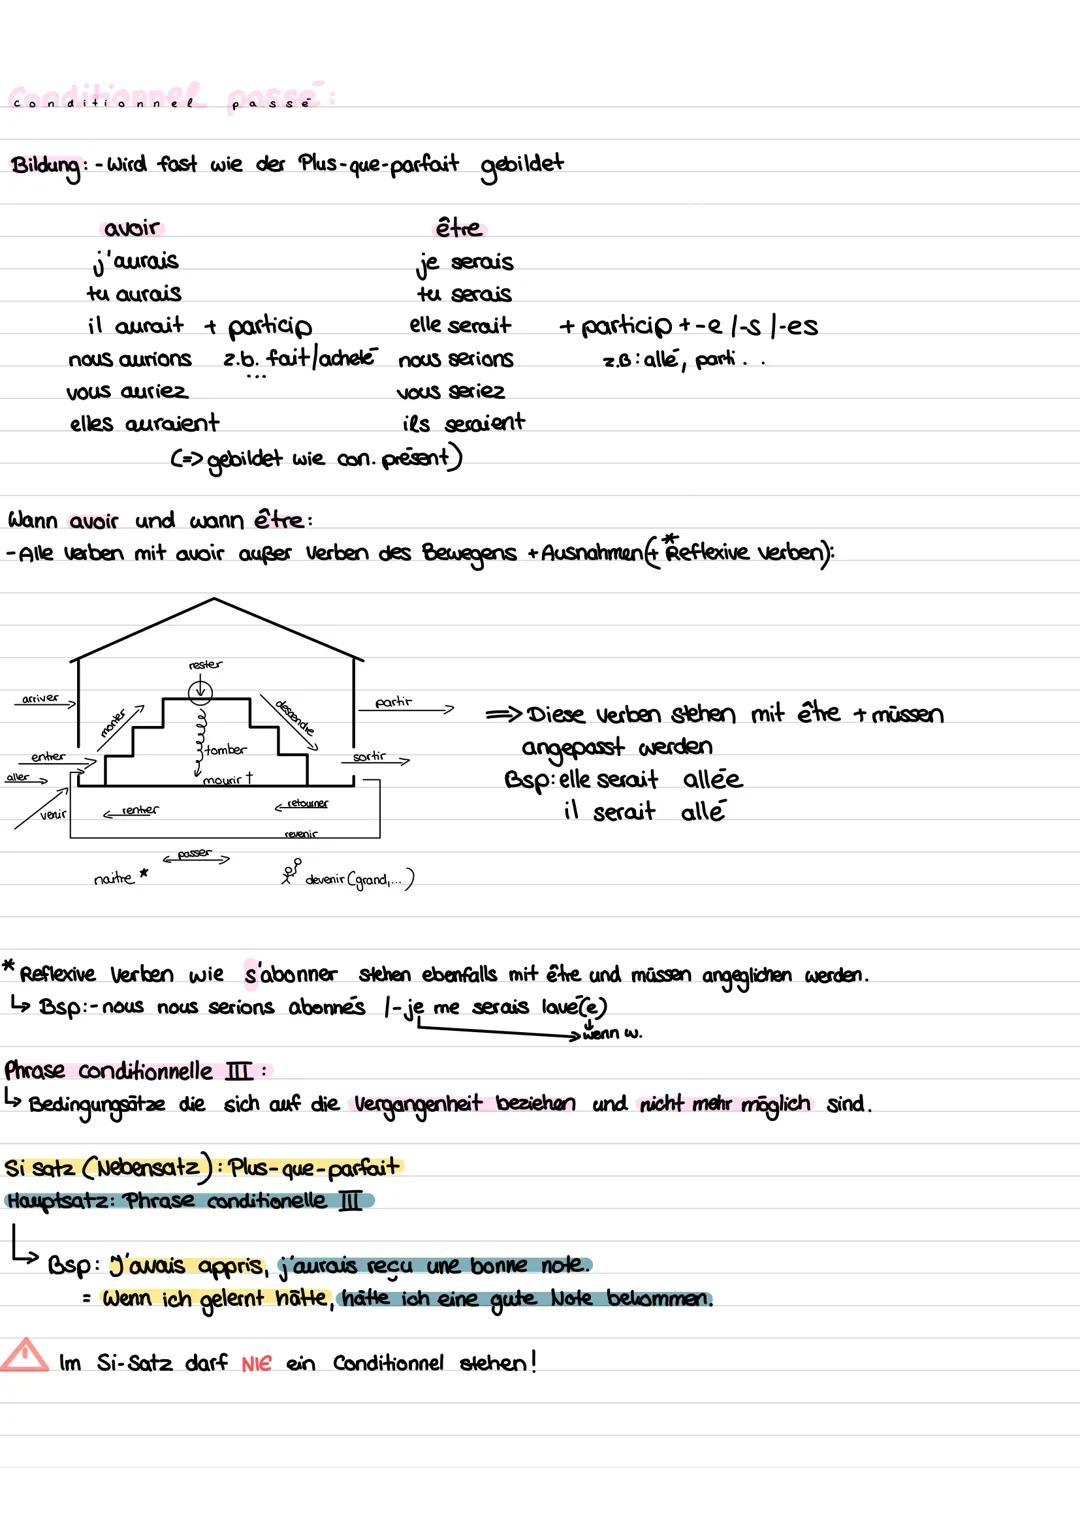 Conditionnel passé:
conditionnel passé
Bildung: - Wird fast wie der Plus-que-parfait gebildet
avoir être
j'aurais je serais
tu aurais tu serais
il aurait + particip elle serait + particip + -e /-s /-es
nous aurions z.b. fait/acheté nous serions z.B: allé, parti . .
...
vous auriez vous seriez
elles auraient ils seraient
(=> gebildet wie con. présent)
Wann avoir und wann être:
- Alle Verben mit avoir außer Verben des Bewegens + Ausnahmen (+ *Reflexive Verben):
rester
arriver
monter
descendre
partir
entrer
tomber
sortir
aller
mourir †
venir
rentrer
retourner
revenir
passer
naitre *
devenir (grand,...)
=> Diese Verben stehen mit être + müssen
angepasst werden
Bsp: elle serait allée
il serait allé
* Reflexive Verben wie s'abonner stehen ebenfalls mit être und müssen angeglichen werden.
↳ Bsp:- nous nous serions abonnés /- je me serais lavé(e)
→ wenn w.
Phrase conditionnelle III :
↳ Bedingungsätze die sich auf die Vergangenheit beziehen und nicht mehr möglich sind.
Si satz (Nebensatz): Plus-que-parfait
Hauptsatz: Phrase conditionelle III
↳ Bsp: J'avais appris, j'aurais reçu une bonne note.
= Wenn ich gelernt hätte, hätte ich eine gute Note bekommen.
! Im Si-Satz darf NIE ein Conditionnel stehen!